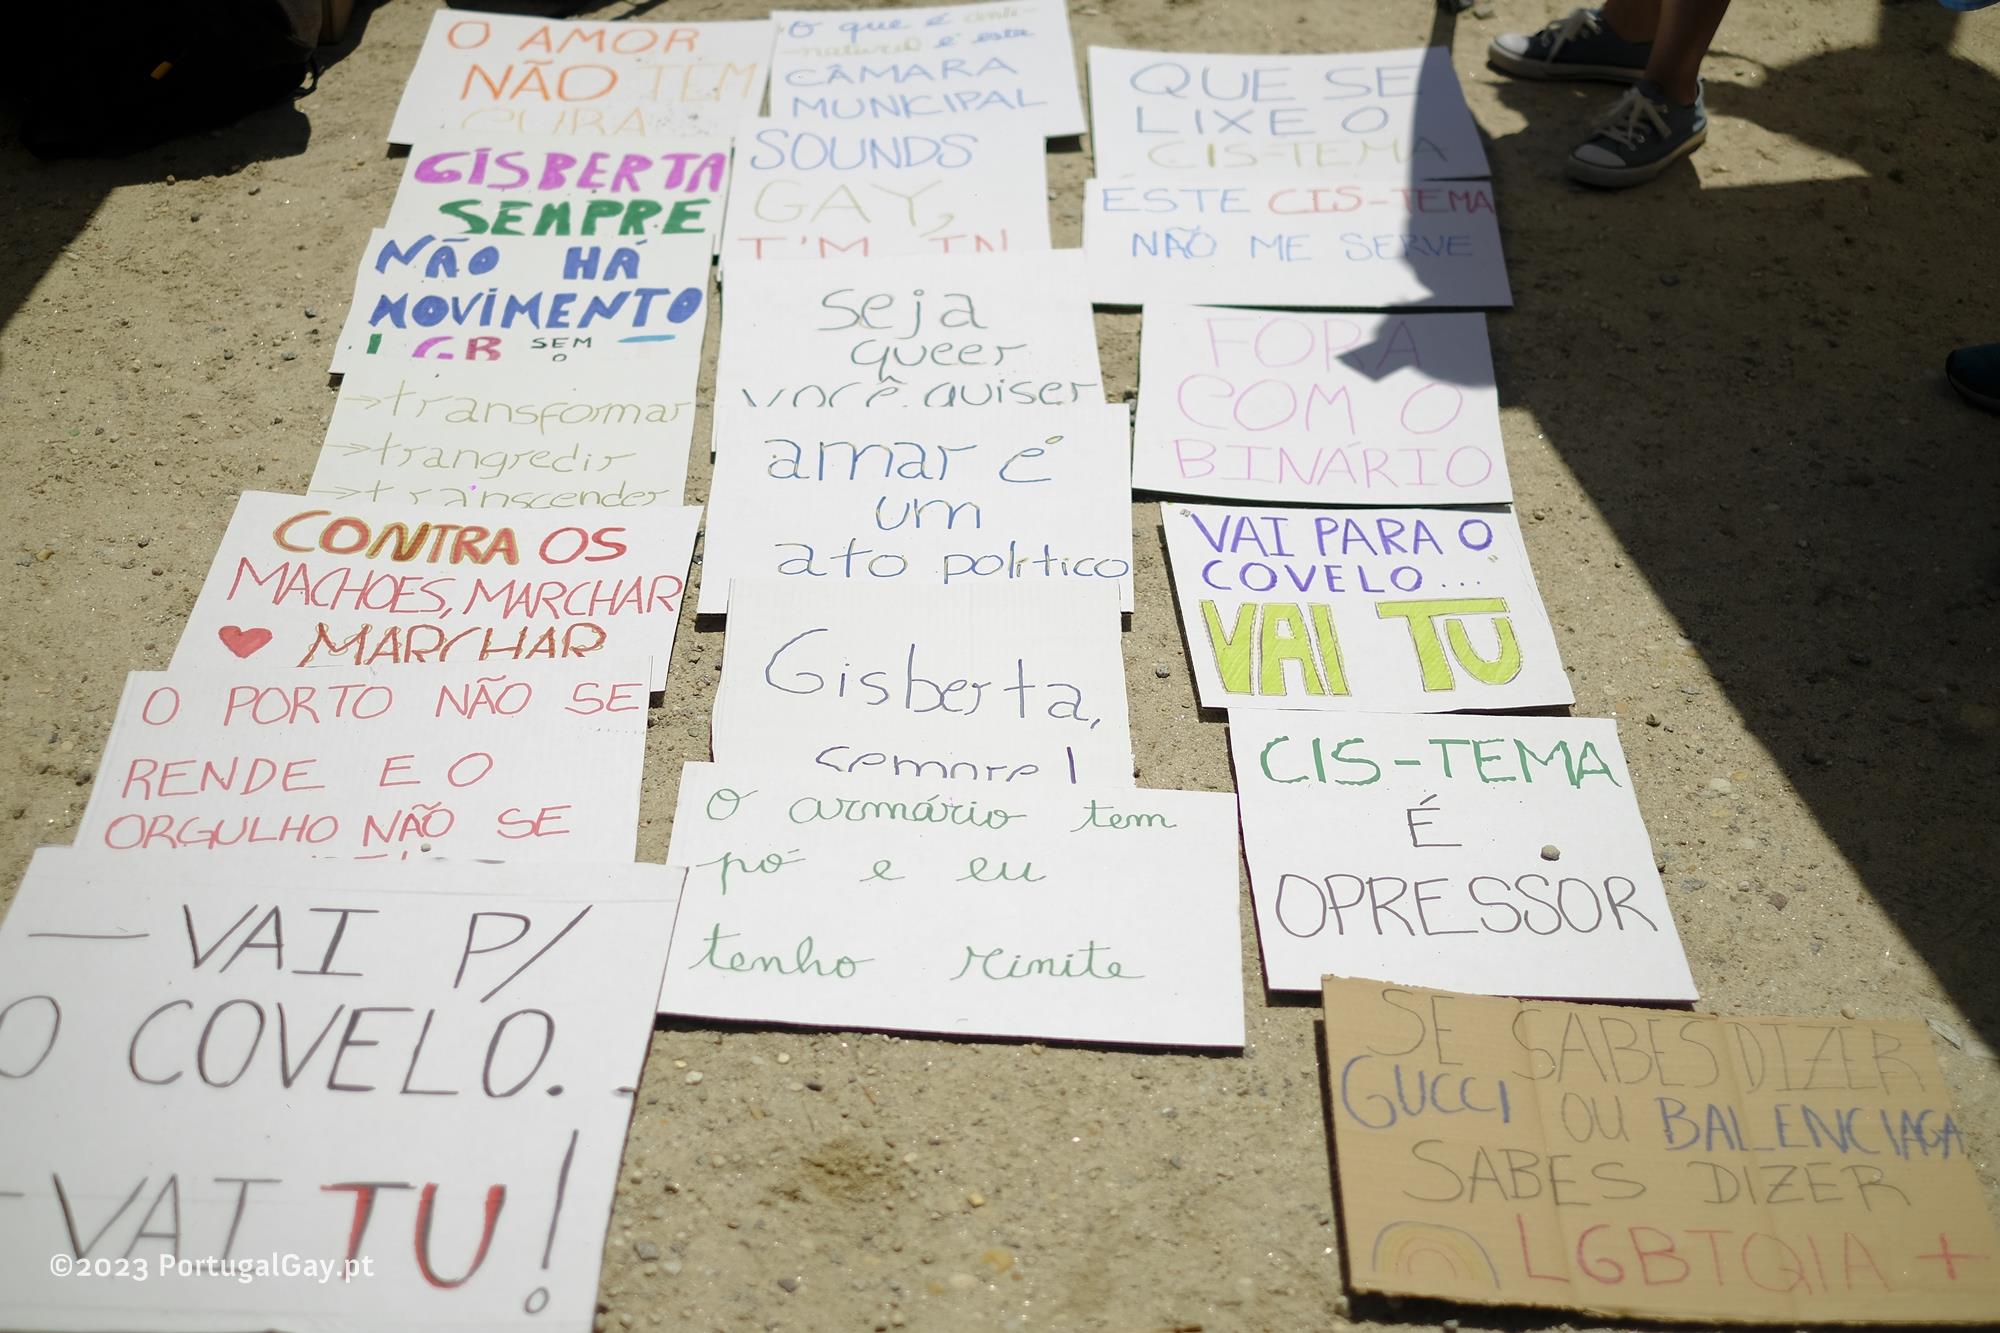 O AMOR
NÃO TEM
CURA
GISBERTA
SEMPRE
NÃO HÁ
MOVIMENTO
SEM
→transformar
→trangredir
→transcender
CONTRA OS
MACHOES, MARCHAR
MARCHAR
O PORTO NÃO SE
RENDE E O
ORGULHO NÃO SE
— VAI P/
O COVELO..
- VAI TU!
O que é contra-
natural é esta
CÂMARA
MUNICIPAL
SOUNDS
GAY,
I'M IN
seja
queer
você quiser
amar é
um
ato político
Gisberta,
sempre!
O armário tem
pó e eu
tenho rinite
QUE SE
LIXE O
CIS-TEMA
ESTE CIS-TEMA
NÃO ME SERVE
FORA
COM O
BINÁRIO
"VAI PARA O
COVELO..."
VAI TU
CIS-TEMA
É
OPRESSOR
SE SABES DIZER
GUCCI OU BALENCIAGA
SABES DIZER
LGBTQIA +
©2023 PortugalGay.pt